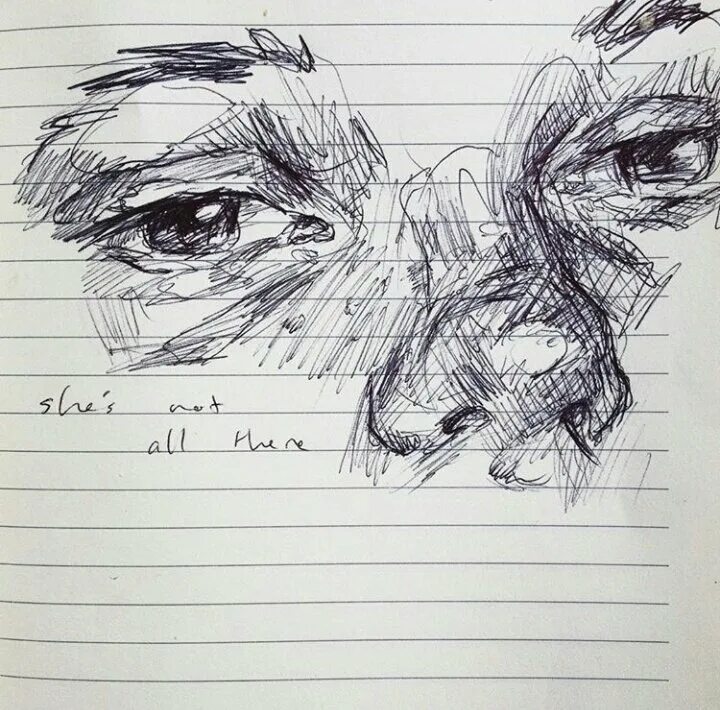 she's not
all there